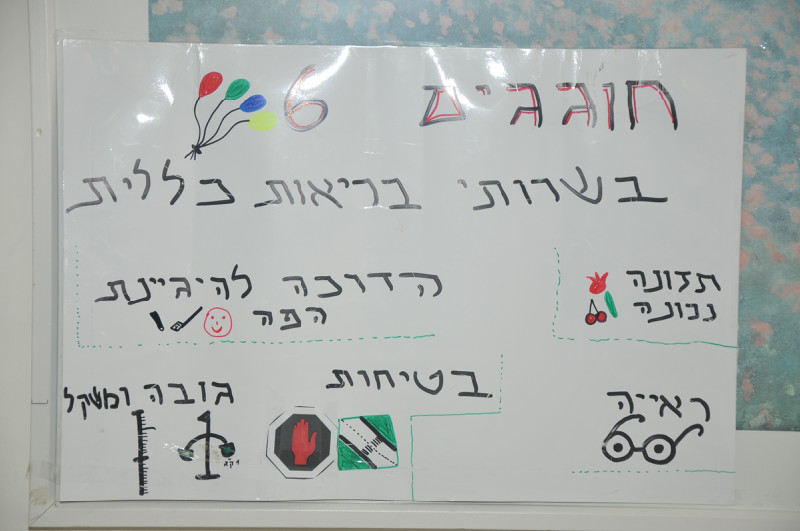 חוגגים 6
בשרותי בריאות כללית
תזונה
נכונה
הדרכה להיגיינת
הפה
ראייה
בטיחות
גובה ומשקל